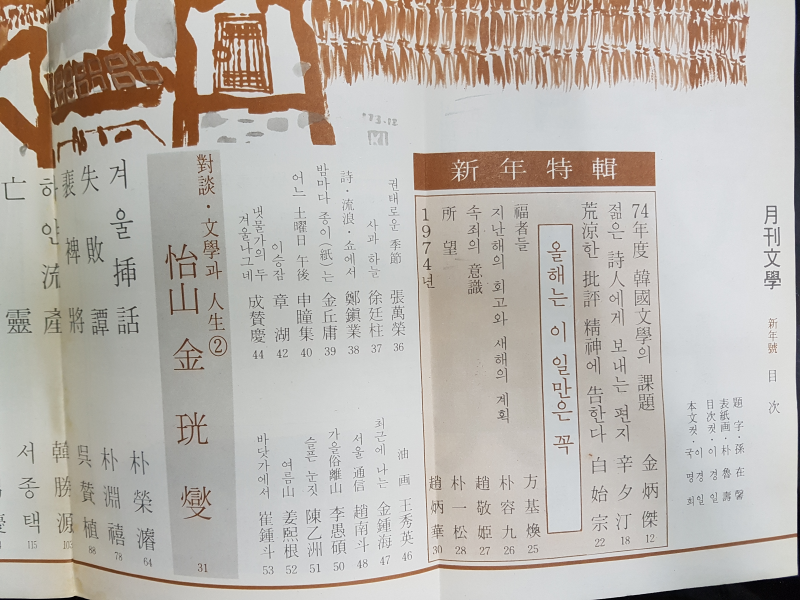 月刊文學 新年號 目次
題字·孫在馨
表紙画·朴魯壽
目次컷·이경일
本文컷·국명희
新年特輯
74年度 韓國文學의 課題 金炳傑 12
젊은 詩人에게 보내는 편지 辛夕汀 18
荒凉한 批評 精神에 告한다 白始宗 22
올해는 이 일만은 꼭
福者들 方基煥 25
지난해의 회고와 새해의 계획 朴容九 26
속죄의 意識 趙敬姬 27
所望 朴一松 28
1974년 趙炳華 30
권태로운 季節 張萬榮 36
사과 하늘 徐廷柱 37
詩·流浪·쇼에서 鄭鎭業 38
밤마다 종이(紙)는 金丘庸 39
어느 土曜日 午後 申瞳集 40
이승잠 章湖 42
냇물가의 두 겨울나그네 成賛慶 44
油画 王秀英 46
최근에 나는 金鍾海 47
서울 通信 趙南斗 48
가을俗離山 李愚碩 50
슬픈 눈짓 陳乙洲 51
여름山 姜熙根 52
바닷가에서 崔鍾斗 53
對談·文學과 人生② 怡山 金珖燮 31
겨울揷話 朴榮濬 64
失敗譚 朴淵禧 78
裵裨將 吳賛植 88
하얀流產 韓勝源 103
亡靈 서종택 115
'73.12